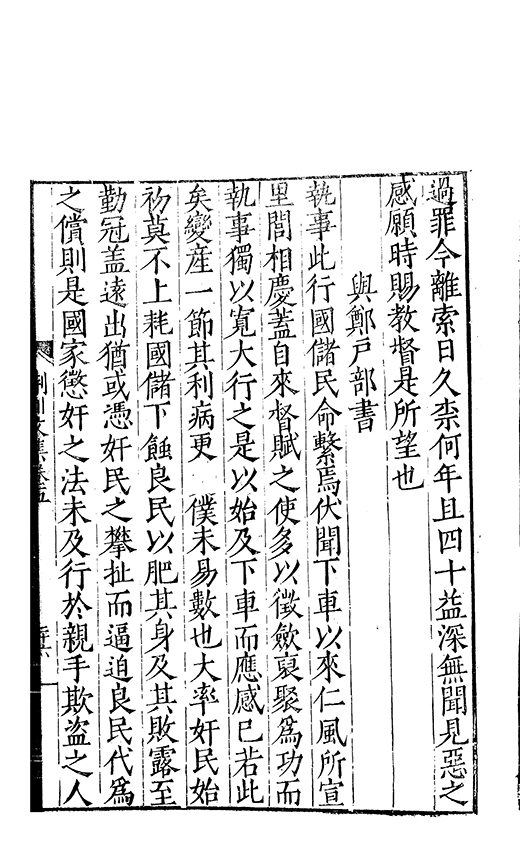 過罪今離索日久柰何年且四十益深無聞見惡之
感願時賜教督是所望也
與鄭戸部書
執事此行國儲民命繫焉伏聞下車以來仁風所宣
里閭相慶蓋自來督賦之使多以徵歛裒聚爲功而
執事獨以寬大行之是以始及下車而應感已若此
矣變産一節其利病更 僕未易數也大率奸民始
初莫不上耗國儲下蝕良民以肥其身及其敗露至
勤冠盖遠出猶或憑奸民之攀扯而逼迫良民代爲
之償則是國家懲奸之法未及行於親手欺盗之人
荆川文集卷五